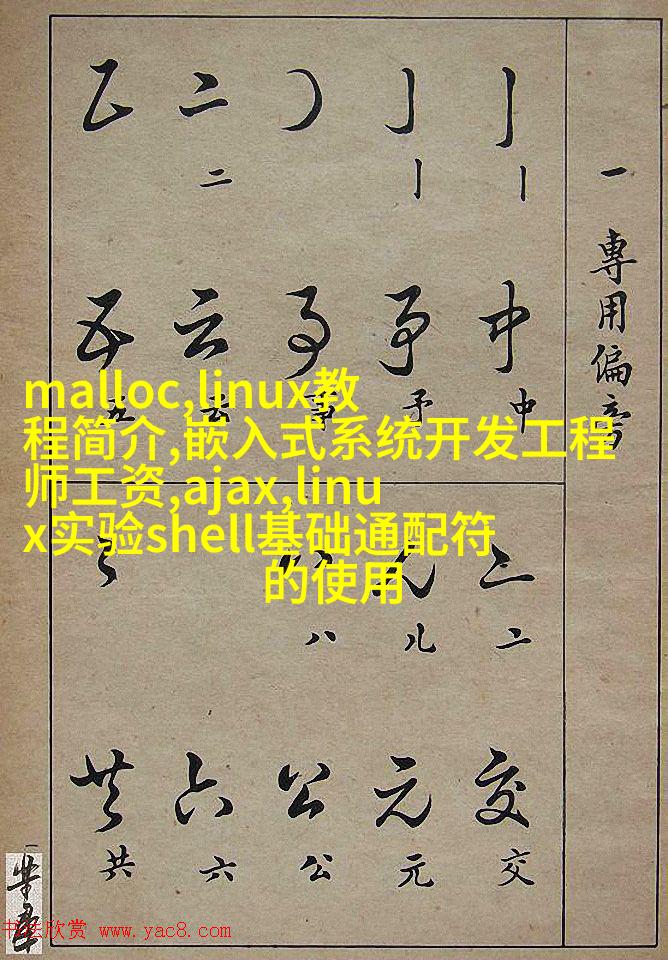 一 專用偏旁
中
中
予
予
事
事
云
云
五
五
malloc,linux教
程简介,嵌入式系统开发工程
师工资,ajax,linu
x实验shell基础通配符
的使用
交
交
儿
元
元
八
公
公
六
六
共
共
书法欣赏 www.yac8.com